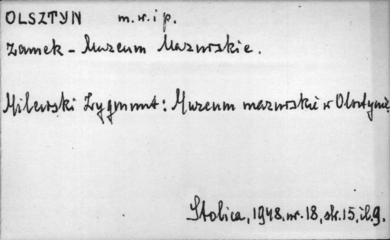 OLSZTYN m. w. i p.
Zamek - Muzeum Mazurskie.
Milewski Zygmunt: Muzeum mazurskie w Olsztynie
Stolica, 1948, nr. 18, str. 15, il. 9.